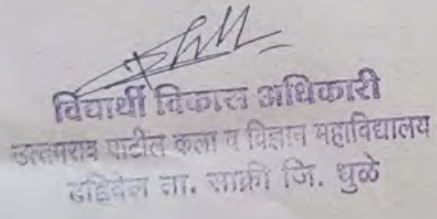 विद्यार्थी विकास अधिकारी
उत्तमराव पाटील कला व विज्ञान महाविद्यालय
दहिवेल ता. साक्री जि. धुळे